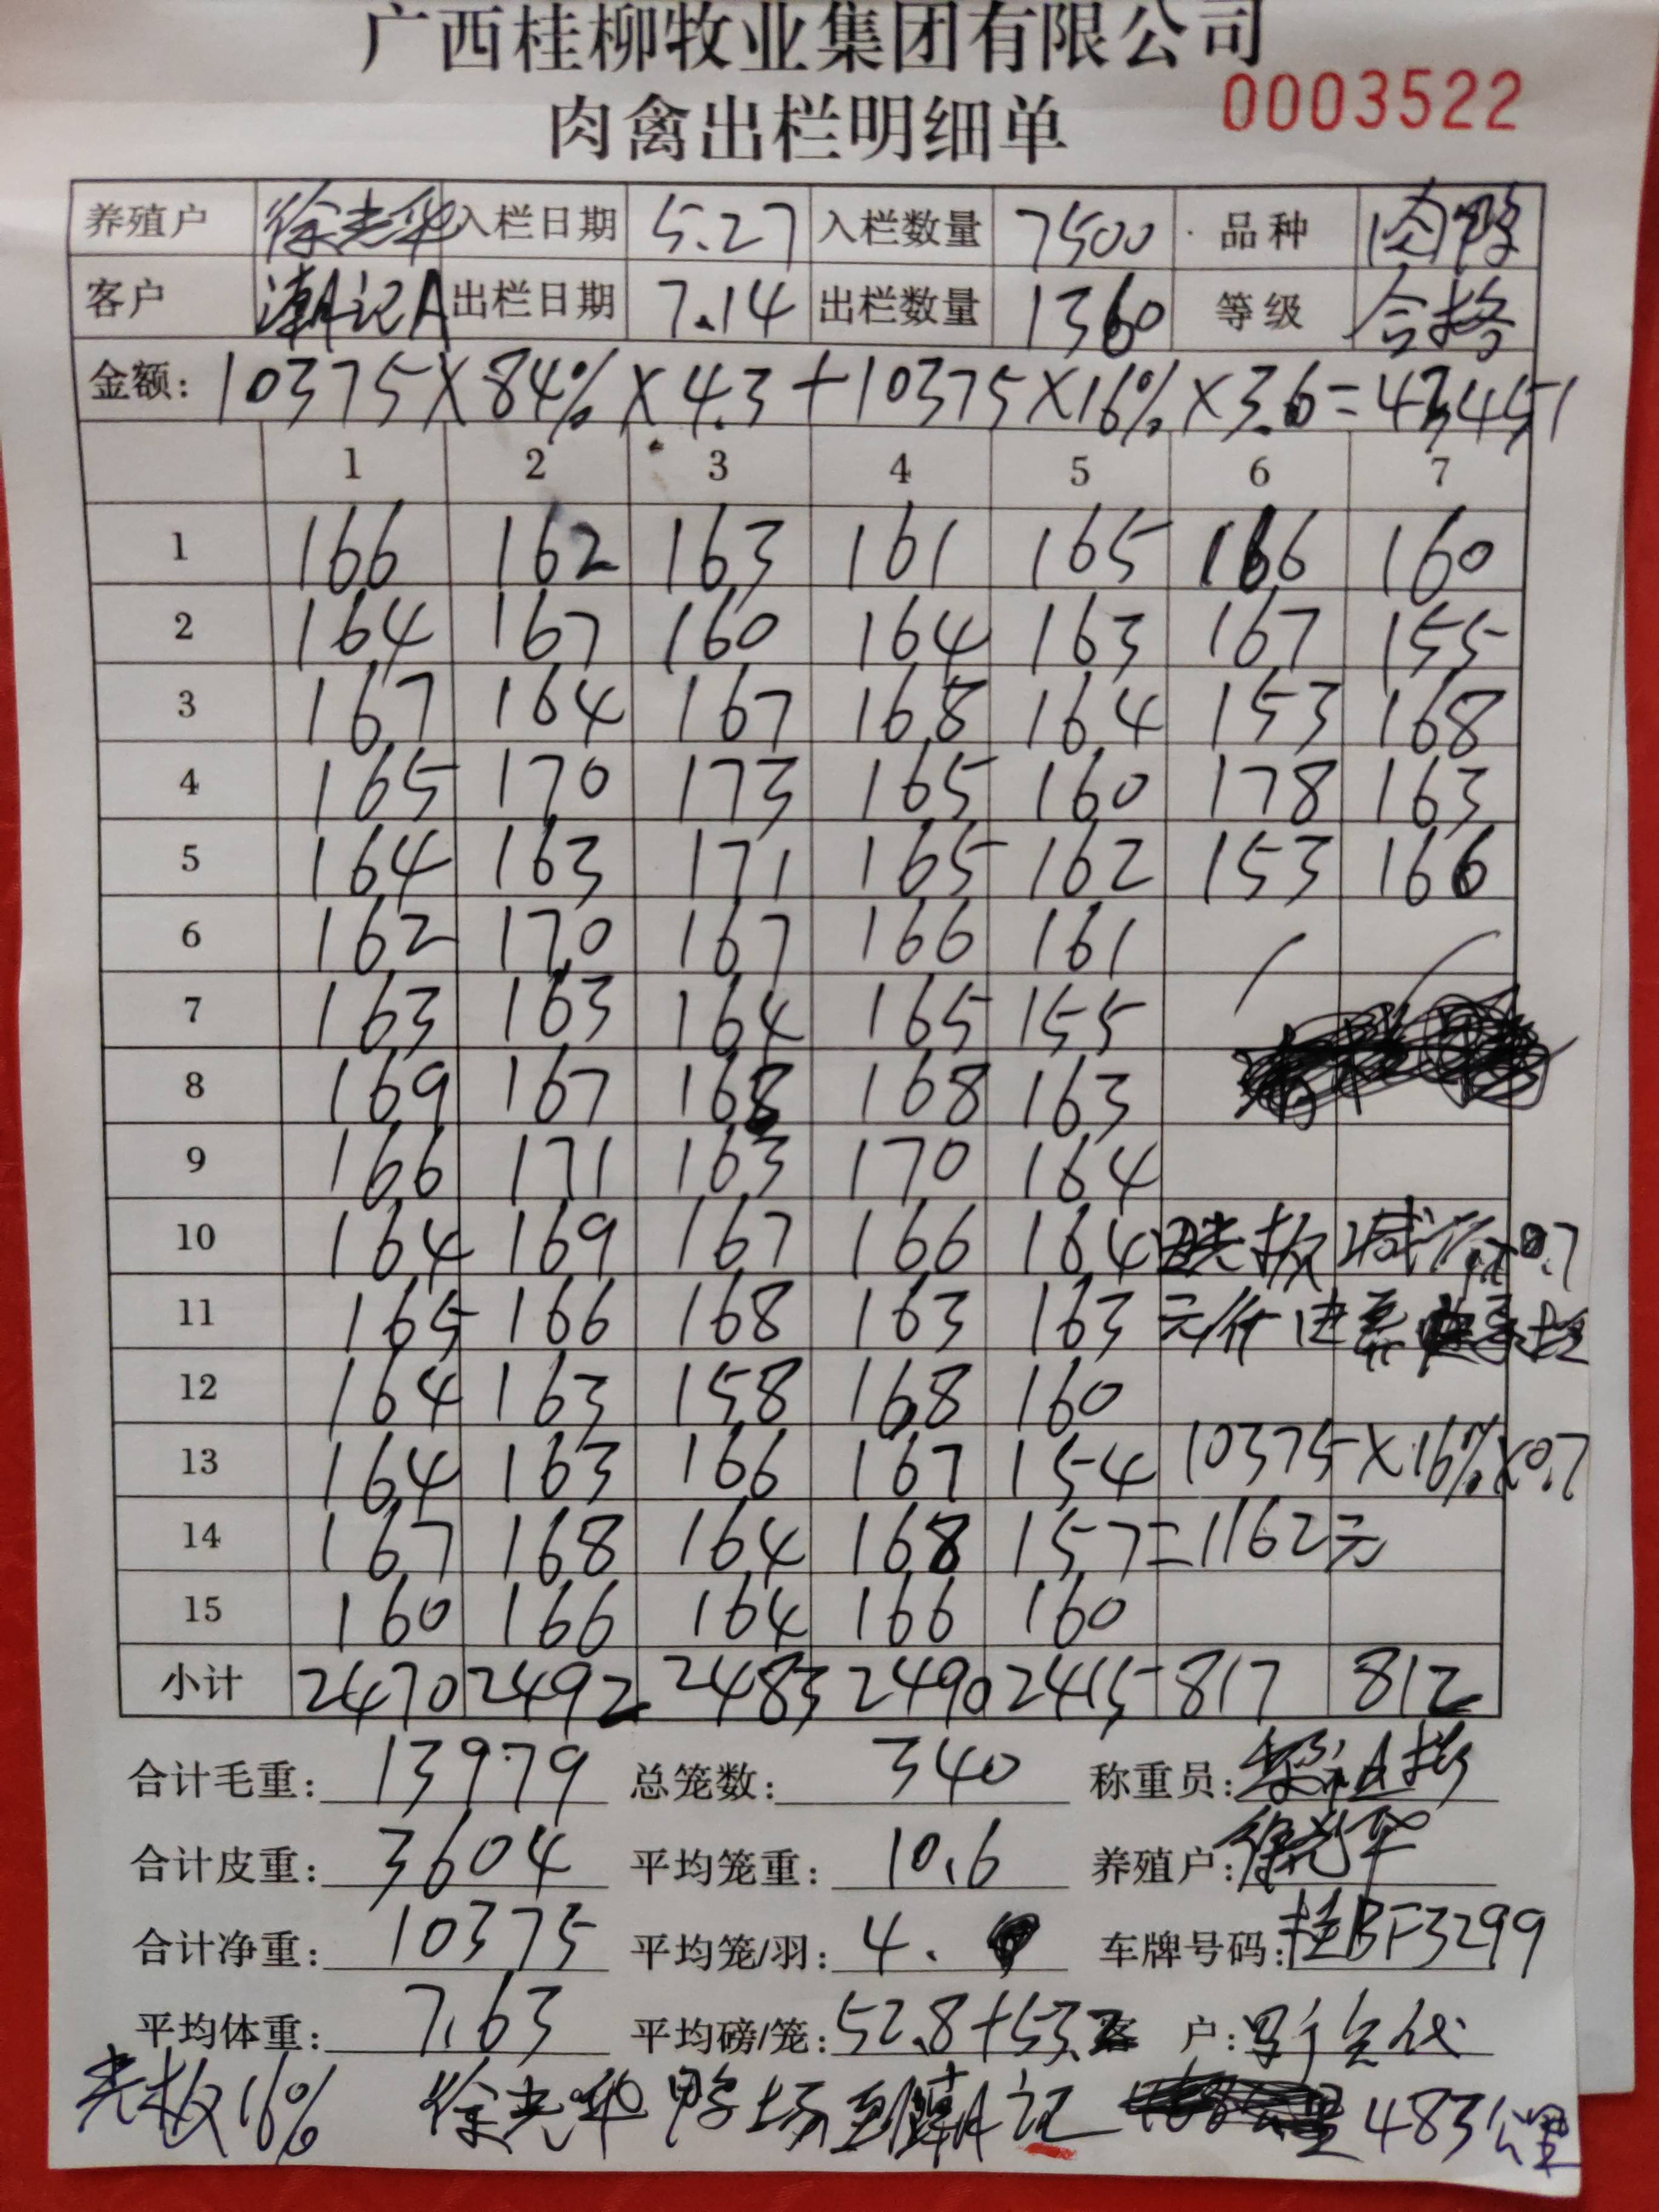 广西桂柳牧业集团有限公司
肉禽出栏明细单 0003522
养殖户 徐光华 入栏日期 5.27 入栏数量 7500 品种 肉鸭
客户 潮记A 出栏日期 7.14 出栏数量 1360 等级 合格
金额: 10375×84%×4.3+10375×16%×3.6=43451
1 2 3 4 5 6 7
1 166 162 163 161 165 166 160
2 164 167 160 164 163 167 155
3 167 164 167 168 164 153 168
4 165 170 173 165 160 178 163
5 164 163 171 165 162 153 166
6 162 170 167 166 161
7 163 163 164 165 155
8 169 167 168 168 163
9 166 171 163 170 164
10 164 169 167 166 164 光板 减 0.7
11 165 166 168 163 163 元/斤
12 164 163 158 168 160
13 164 163 166 167 154 10375×16%×0.7
14 167 168 164 168 157 =1162元
15 160 166 164 166 160
小计 2470 2492 2483 2490 2415 817 812
合计毛重: 13979 总笼数: 340 称重员:
合计皮重: 3604 平均笼重: 10.6 养殖户: 徐光华
合计净重: 10375 平均笼/羽: 4. 车牌号码: 桂BF3299
平均体重: 7.63 平均磅/笼: 52.8+53.2 客户:
光板16% 徐光华鸭场到潮记 483公里